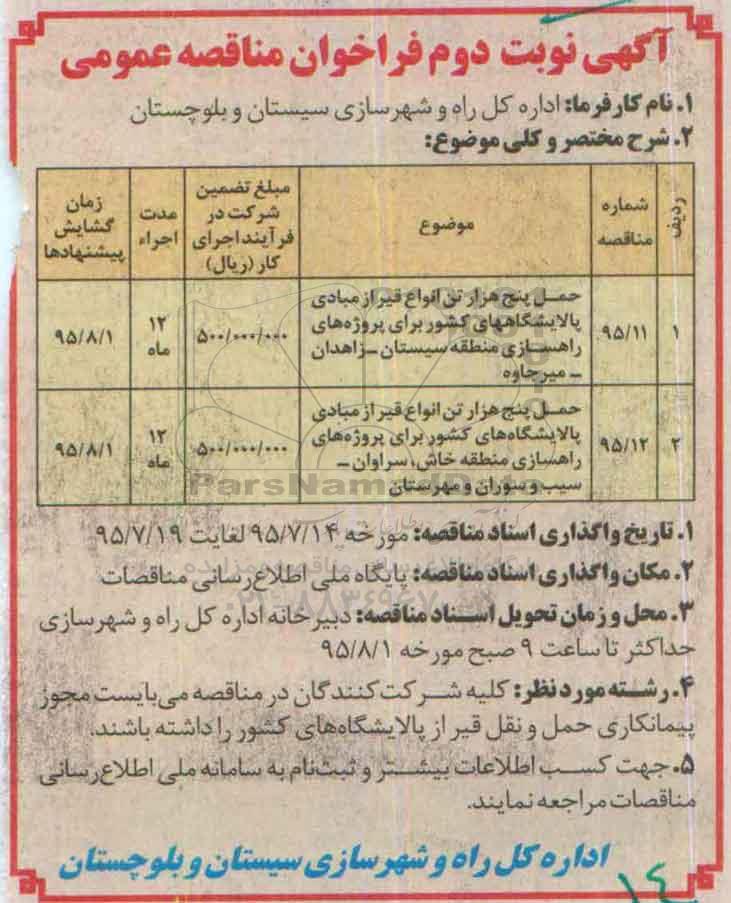 آگهی نوبت دوم فراخوان مناقصه عمومی
۱. نام کارفرما: اداره کل راه و شهرسازی سیستان و بلوچستان
۲. شرح مختصر و کلی موضوع:
ردیف
شماره
مناقصه
موضوع
مبلغ تضمین
شرکت در
فرآیند اجرای
کار (ریال)
مدت
اجراء
زمان
گشایش
پیشنهادها
۱
۹۵/۱۱
حمل پنج هزار تن انواع قیر از مبادی
پالایشگاههای کشور برای پروژه‌های
راهسازی منطقه سیستان ـ زاهدان
ـ میرجاوه
۵۰۰/۰۰۰/۰۰۰
۱۲
ماه
۹۵/۸/۱
۲
۹۵/۱۲
حمل پنج هزار تن انواع قیر از مبادی
پالایشگاه‌های کشور برای پروژه‌های
راهسازی منطقه خاش، سراوان ـ
سیب و سوران و مهرستان
۵۰۰/۰۰۰/۰۰۰
۱۲
ماه
۹۵/۸/۱
ParsNam
۱. تاریخ واگذاری اسناد مناقصه: مورخه ۹۵/۷/۱۴ لغایت ۹۵/۷/۱۹
۲. مکان واگذاری اسناد مناقصه: پایگاه ملی اطلاع‌رسانی مناقصات
۳. محل و زمان تحویل اسناد مناقصه: دبیرخانه اداره کل راه و شهرسازی
حداکثر تا ساعت ۹ صبح مورخه ۹۵/۸/۱
۴. رشته مورد نظر: کلیه شرکت‌کنندگان در مناقصه می‌بایست مجوز
پیمانکاری حمل و نقل قیر از پالایشگاه‌های کشور را داشته باشند.
۵. جهت کسب اطلاعات بیشتر و ثبت‌نام به سامانه ملی اطلاع‌رسانی
مناقصات مراجعه نمایند.
اداره کل راه و شهرسازی سیستان و بلوچستان
۱۴